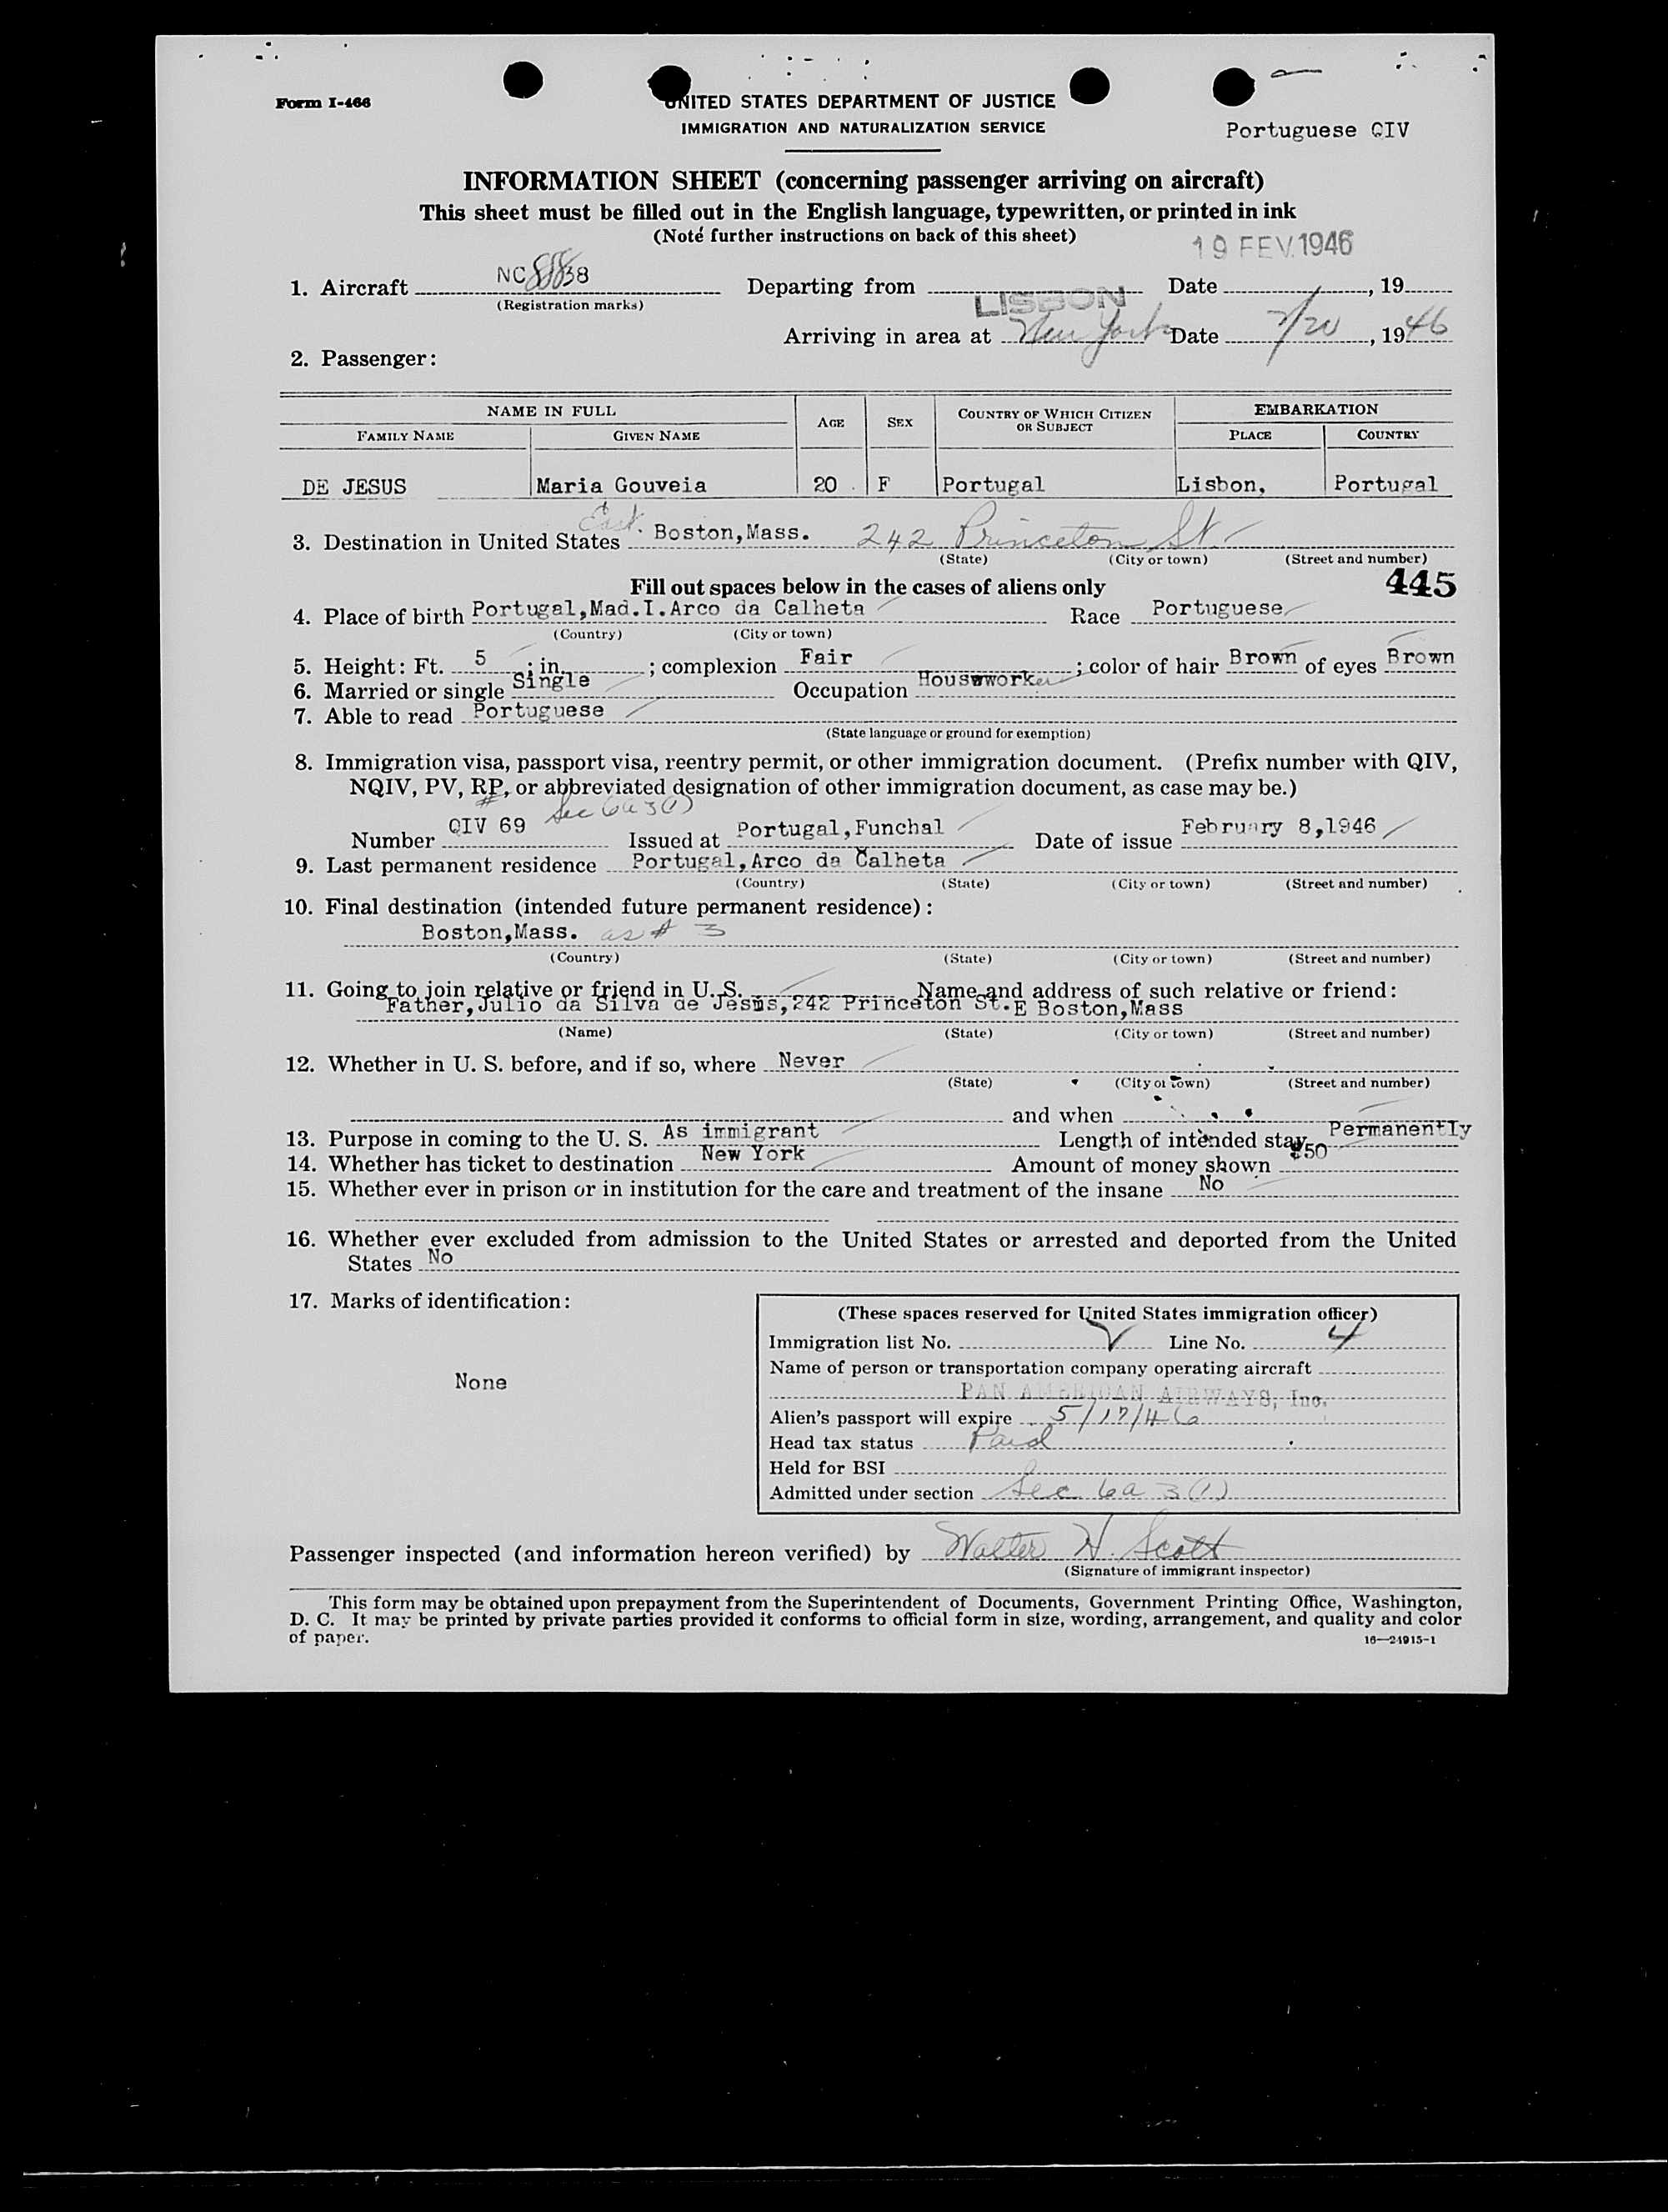 Form I-466
UNITED STATES DEPARTMENT OF JUSTICE
IMMIGRATION AND NATURALIZATION SERVICE
Portuguese QIV
INFORMATION SHEET (concerning passenger arriving on aircraft)
This sheet must be filled out in the English language, typewritten, or printed in ink
(Note further instructions on back of this sheet)
19 FEV. 1946
1. Aircraft NC 88838 Departing from LISBON Date , 19
(Registration marks)
Arriving in area at New York Date 2/20, 1946
2. Passenger:
NAME IN FULL AGE SEX COUNTRY OF WHICH CITIZEN OR SUBJECT EMBARKATION
FAMILY NAME GIVEN NAME PLACE COUNTRY
DE JESUS Maria Gouveia 20 F Portugal Lisbon, Portugal
3. Destination in United States East Boston,Mass. 242 Princeton St.
(State) (City or town) (Street and number)
Fill out spaces below in the cases of aliens only 445
4. Place of birth Portugal,Mad.I.Arco da Calheta Race Portuguese
(Country) (City or town)
5. Height: Ft. 5 ; in. ; complexion Fair ; color of hair Brown of eyes Brown
6. Married or single Single Occupation Houswworker
7. Able to read Portuguese
(State language or ground for exemption)
8. Immigration visa, passport visa, reentry permit, or other immigration document. (Prefix number with QIV,
NQIV, PV, RP, or abbreviated designation of other immigration document, as case may be.)
# Sec 6a 3(1)
Number QIV 69 Issued at Portugal,Funchal Date of issue February 8,1946
9. Last permanent residence Portugal,Arco da Calheta
(Country) (State) (City or town) (Street and number)
10. Final destination (intended future permanent residence):
Boston,Mass. as # 3
(Country) (State) (City or town) (Street and number)
11. Going to join relative or friend in U. S. Name and address of such relative or friend:
Father,Julio da Silva de Jesus,242 Princeton St.E Boston,Mass
(Name) (State) (City or town) (Street and number)
12. Whether in U. S. before, and if so, where Never
(State) (City or town) (Street and number)
and when
13. Purpose in coming to the U. S. As immigrant Length of intended stay Permanently
14. Whether has ticket to destination New York Amount of money shown $50
15. Whether ever in prison or in institution for the care and treatment of the insane No
16. Whether ever excluded from admission to the United States or arrested and deported from the United
States No
17. Marks of identification:
None
(These spaces reserved for United States immigration officer)
Immigration list No. Line No. 4
Name of person or transportation company operating aircraft
PAN AMERICAN AIRWAYS, Inc.
Alien's passport will expire 5/17/46
Head tax status Paid
Held for BSI
Admitted under section Sec 6a 3(1)
Passenger inspected (and information hereon verified) by Walter H. Scott
(Signature of immigrant inspector)
This form may be obtained upon prepayment from the Superintendent of Documents, Government Printing Office, Washington,
D. C. It may be printed by private parties provided it conforms to official form in size, wording, arrangement, and quality and color
of paper.
16—24915-1